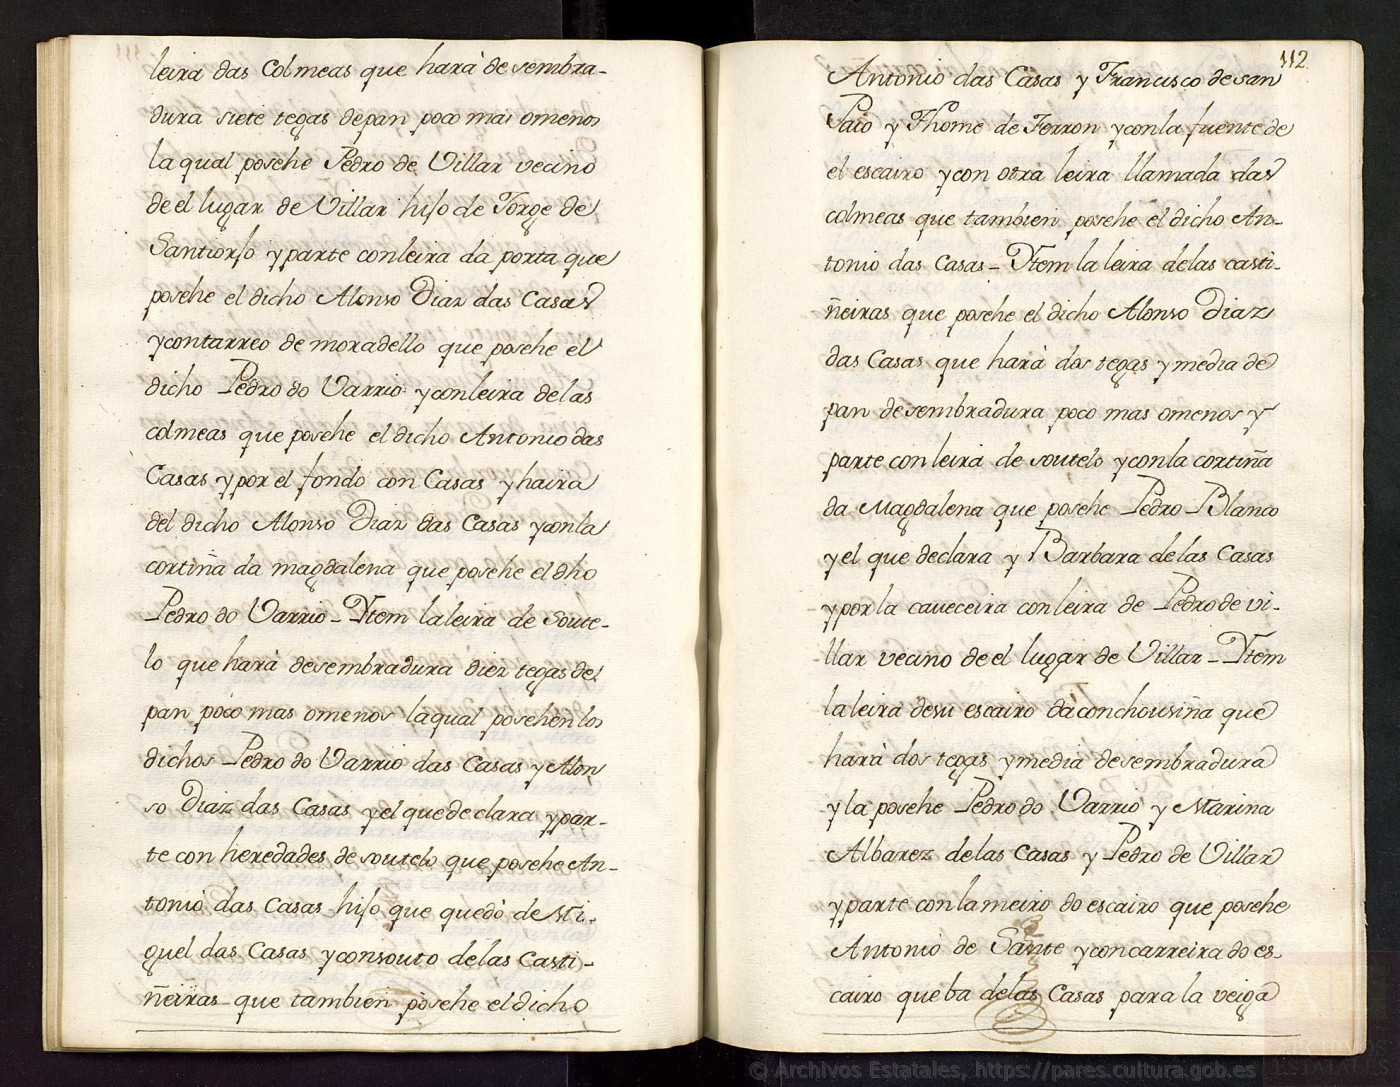 leira das Colmeas que harà de sembra-
dura siete tegas de pan poco mas omenos
la qual posehe Pedro de Villar vecino
de el lugar de Villar hijo de Jorge de
Santiorjo y parte con leira da porta que
posehe el dicho Alonso Diaz das Casas
y contarreo de moradello que posehe el
dicho Pedro do Varrio y con leira de las
colmeas que posehe el dicho Antonio das
Casas y por el fondo con Casas y haira
del dicho Alonso Diaz das Casas y con la
cortiña da magdalena que posehe el dho
Pedro do Varrio - Ytem la leira de Soute-
lo que harà de sembradura diez tegas de
pan poco mas omenos la qual posehen los
dichos Pedro do Varrio das Casas y Alon
so Diaz das Casas y el que declara y par-
te con heredades de soutelo que posehe An-
tonio das Casas hijo que quedò de Mi-
guel das Casas y con souto de las Casti-
ñeiras que tambien posehe el dicho
112
Antonio das Casas y Francisco de san
Paio y Thome de Ferron y con la fuente de
el escairo y con otra leira llamada das
colmeas que tambien posehe el dicho An-
tonio das Casas - Ytem la leira de las casti-
ñeiras que posehe el dicho Alonso Diaz
das Casas que harà dos tegas y media de
pan de sembradura poco mas omenos y
parte con leira de soutelo y con la cortiña
da Magdalena que posehe Pedro Blanco
y el que declara y Barbara de las Casas
y por la caveceira con leira de Pedro de vi-
llar vecino de el lugar de Villar - Ytem
la leira de su escairo da conchousiña que
harà dos tegas y media de sembradura
y la posehe Pedro do Varrio y Marina
Albarez de las Casas y Pedro de Villar
y parte con lameiro do escairo que posehe
Antonio de Sante y con carreira do es-
cairo que ba de las Casas para la veiga
© Archivos Estatales, https://pares.cultura.gob.es
ARCHIVOS
ESTATALES